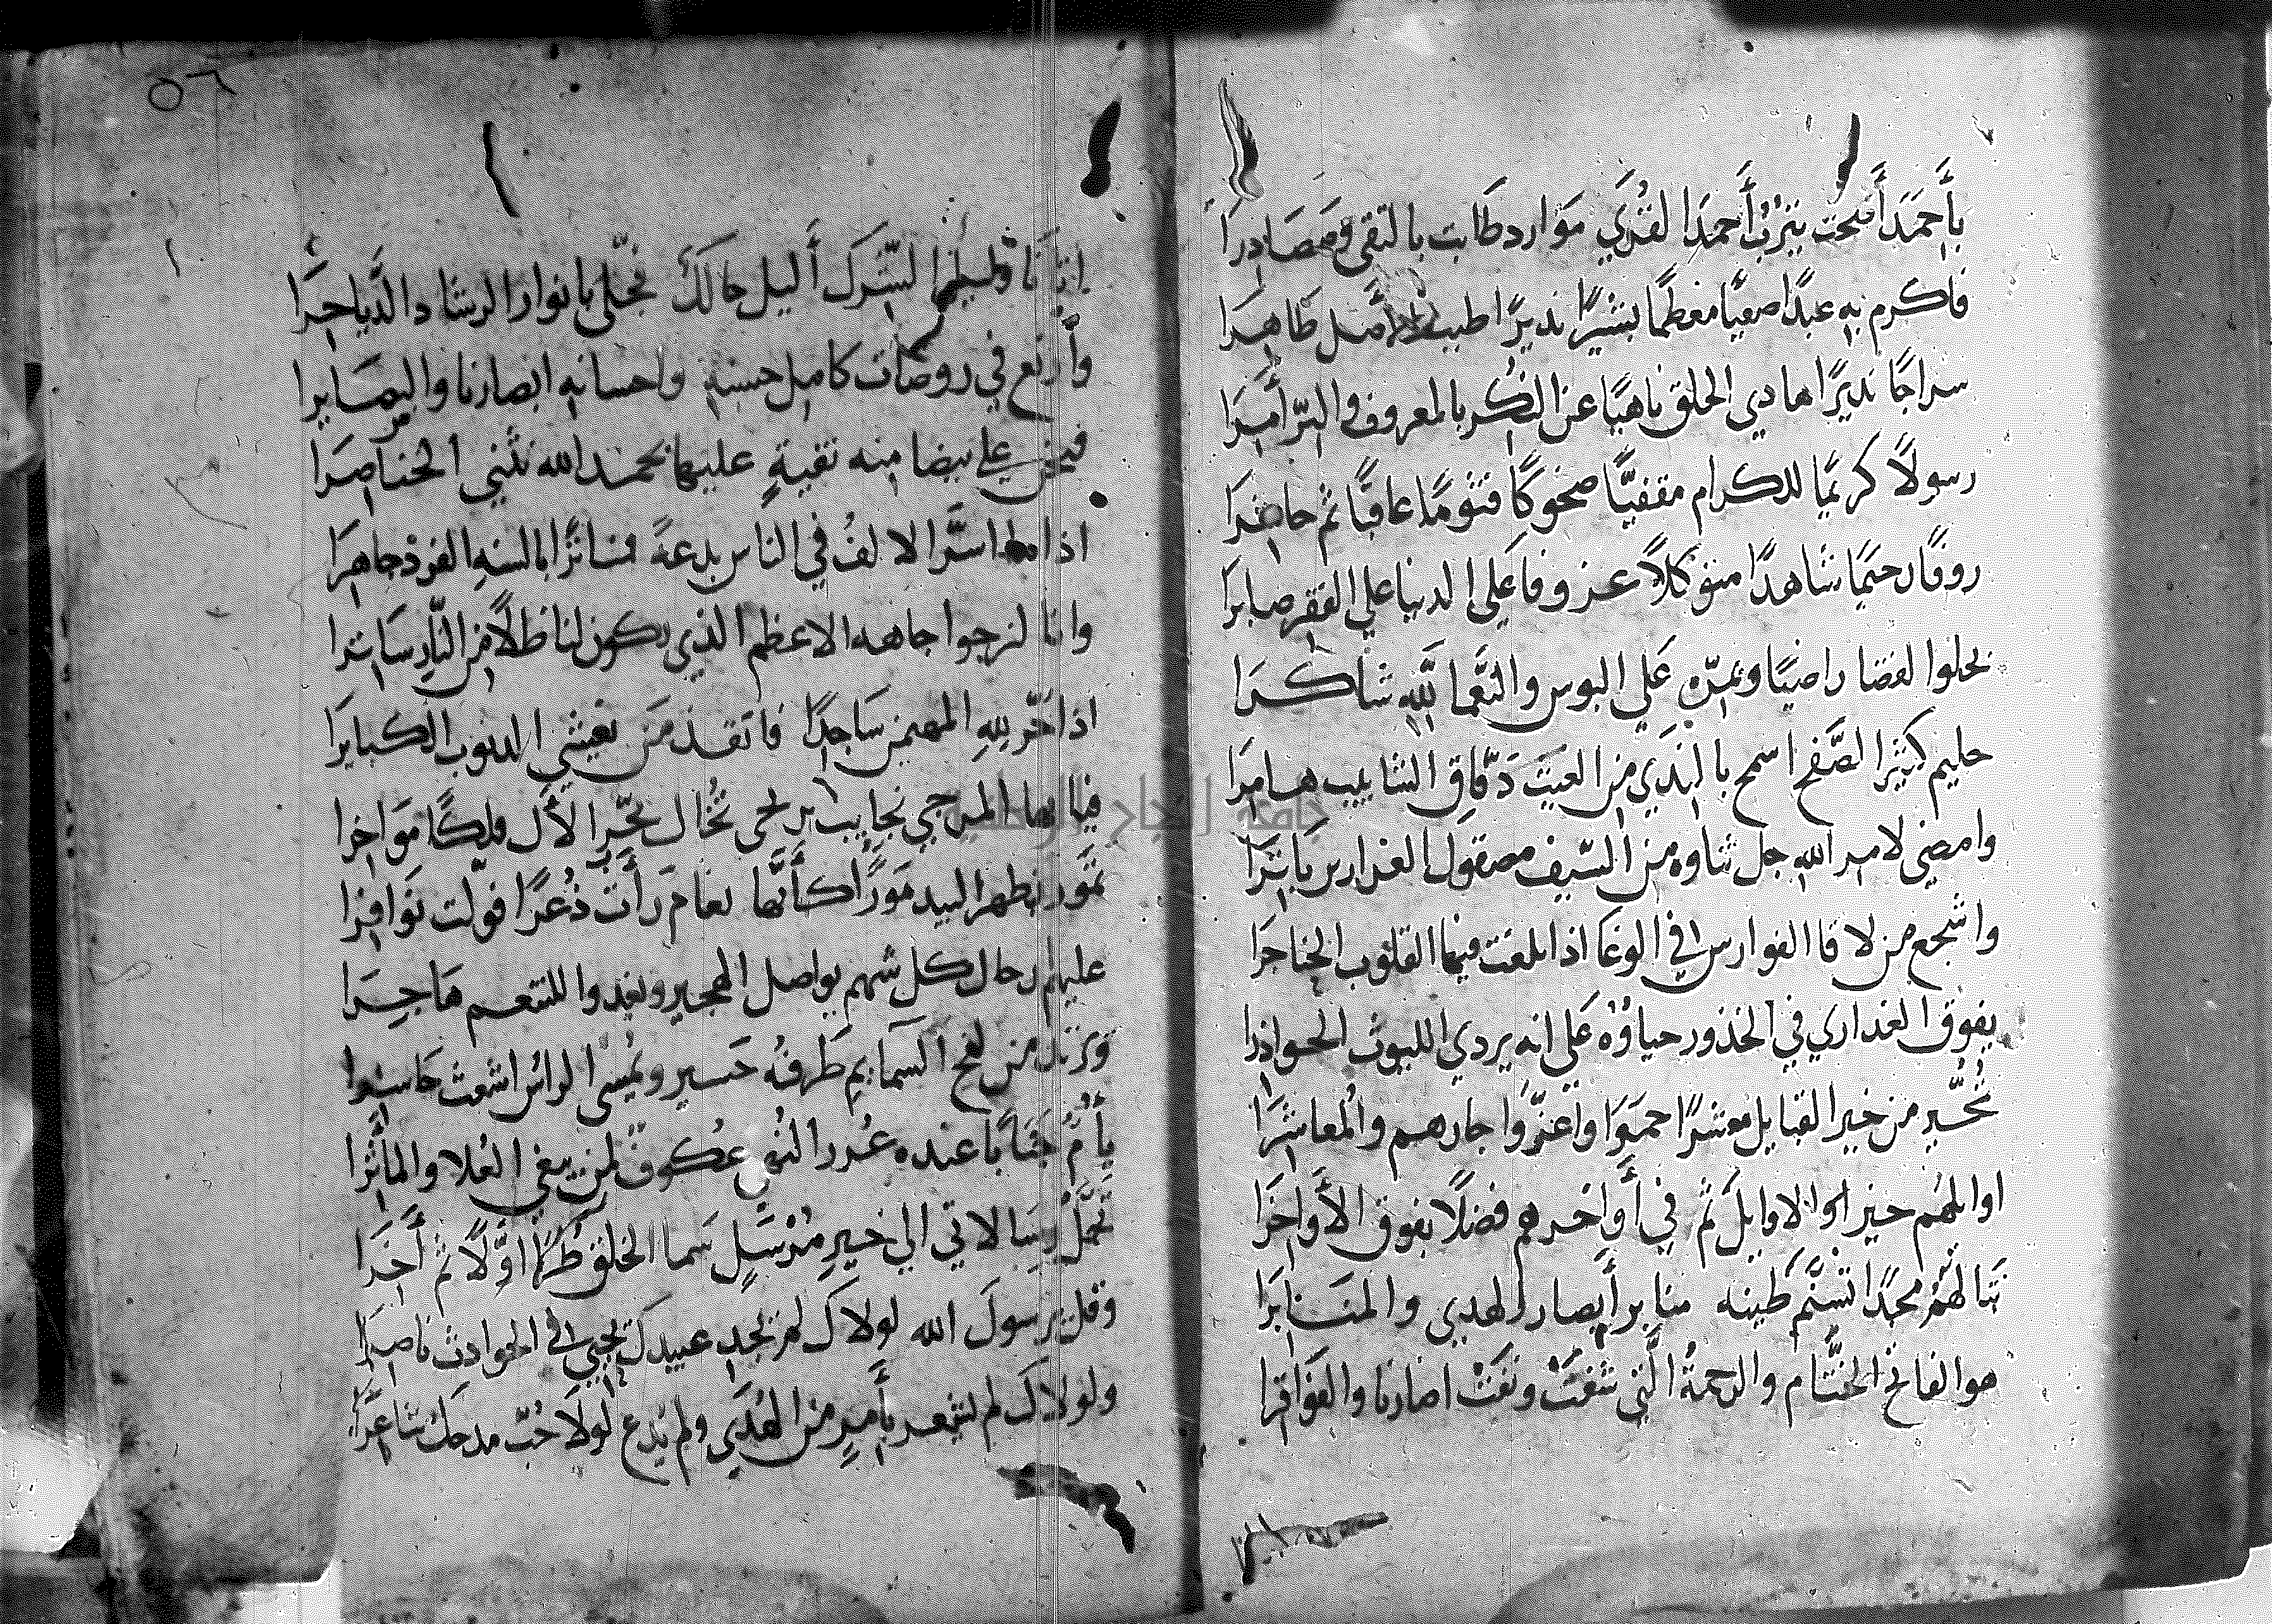 بأحمد أضحت يثرب أحمد القري موارد طابت بالتقى ومصادرا
فاكرم به عبدًا صفيًا معظمًا بشيرًا نذيرًا طيب الأصل طاهرا
سراجًا نذيرًا هادي الخلق ناهيًا عن النكر بالمعروف والبر أمرا
رسولاً كريمًا للكرام مقفيًّا ضحوكًا قثومًا عاقبًا ثم حاشرا
روفًا رحيمًا شاهدًا متوكلاً عزوفا على الدنيا علي الفقر صابرا
بحلوا القضا راضيًا وبمره علي البوس والنعما لله شاكرا
حليم كثير الصفح اسمح بالندي من الغيث دفاق الشابيب هامرا
وامضي لامر الله جل ثناوه من السيف مصقول الغرارين باترا
واشجع من لاقا الفوارس في الوغا اذا بلغت فيها القلوب الحناجرا
يفوق العذاري في الخدور حياؤه على انه يردي الليوث الخوادرا
تخير من خير القبايل معشرًا حموا وأعزوا جارهم والمعاشرا
اوايلهم خير الاوايل ثم في أواخرهم فضلًا يفوق الأواخرا
بنا لهم مجدًا تسنم طينه منابر أبصار الهدى والمنابرا
هو الفاتح الختام والرحمة التي شفت ونفت اضارنا والفواقرا
٥٦
اتانا وليل الشرك أليل حالك فجلى بانوار الرشاد الدياجرا
وأرتع في روضات كامل حسنه واحسانه ابصارنا والبصايرا
فنحن علي بيضا منه نقية عليها بحمد الله نثني الخناصرا
اذا ما اسر الالف في الناس بدعة فسانرا بالسنه الفرد جاهرا
وانا لنرجوا جاهه الاعظم الذي يكون لنا ظلًا من النار ساترا
اذا خر لله المهيمن ساجدًا فانقذ من يغشي الذنوب الكبايرا
فيا ايها المزجي نجايب برحى تخال بحر الأل فلكًا مواخرا
تمور بظهر البيد مورًا كأنها نعام رأت ذعرًا فولت نوافرا
عليها رحال كل شهم يواصل الهجير ويغدوا للتنعم هاجرا
ويرتد من لفح السمايم طرفه حسير ويمسى الراس اشعث حاسرا
يأم جنابًا عنده غرر النهى عكوف لمن يبغي العلا والمأثرا
تحمل رسالاتي الي خير مرسل سما الخلق طرًا أولًا ثم أخرا
وقل يرسول الله لولاك لم نجد عبيدك يحيى في الحوادث ناصرا
ولولاك لم يشعر بأمر من الهدي ولم يدع لولا حب مدحك شاعرا